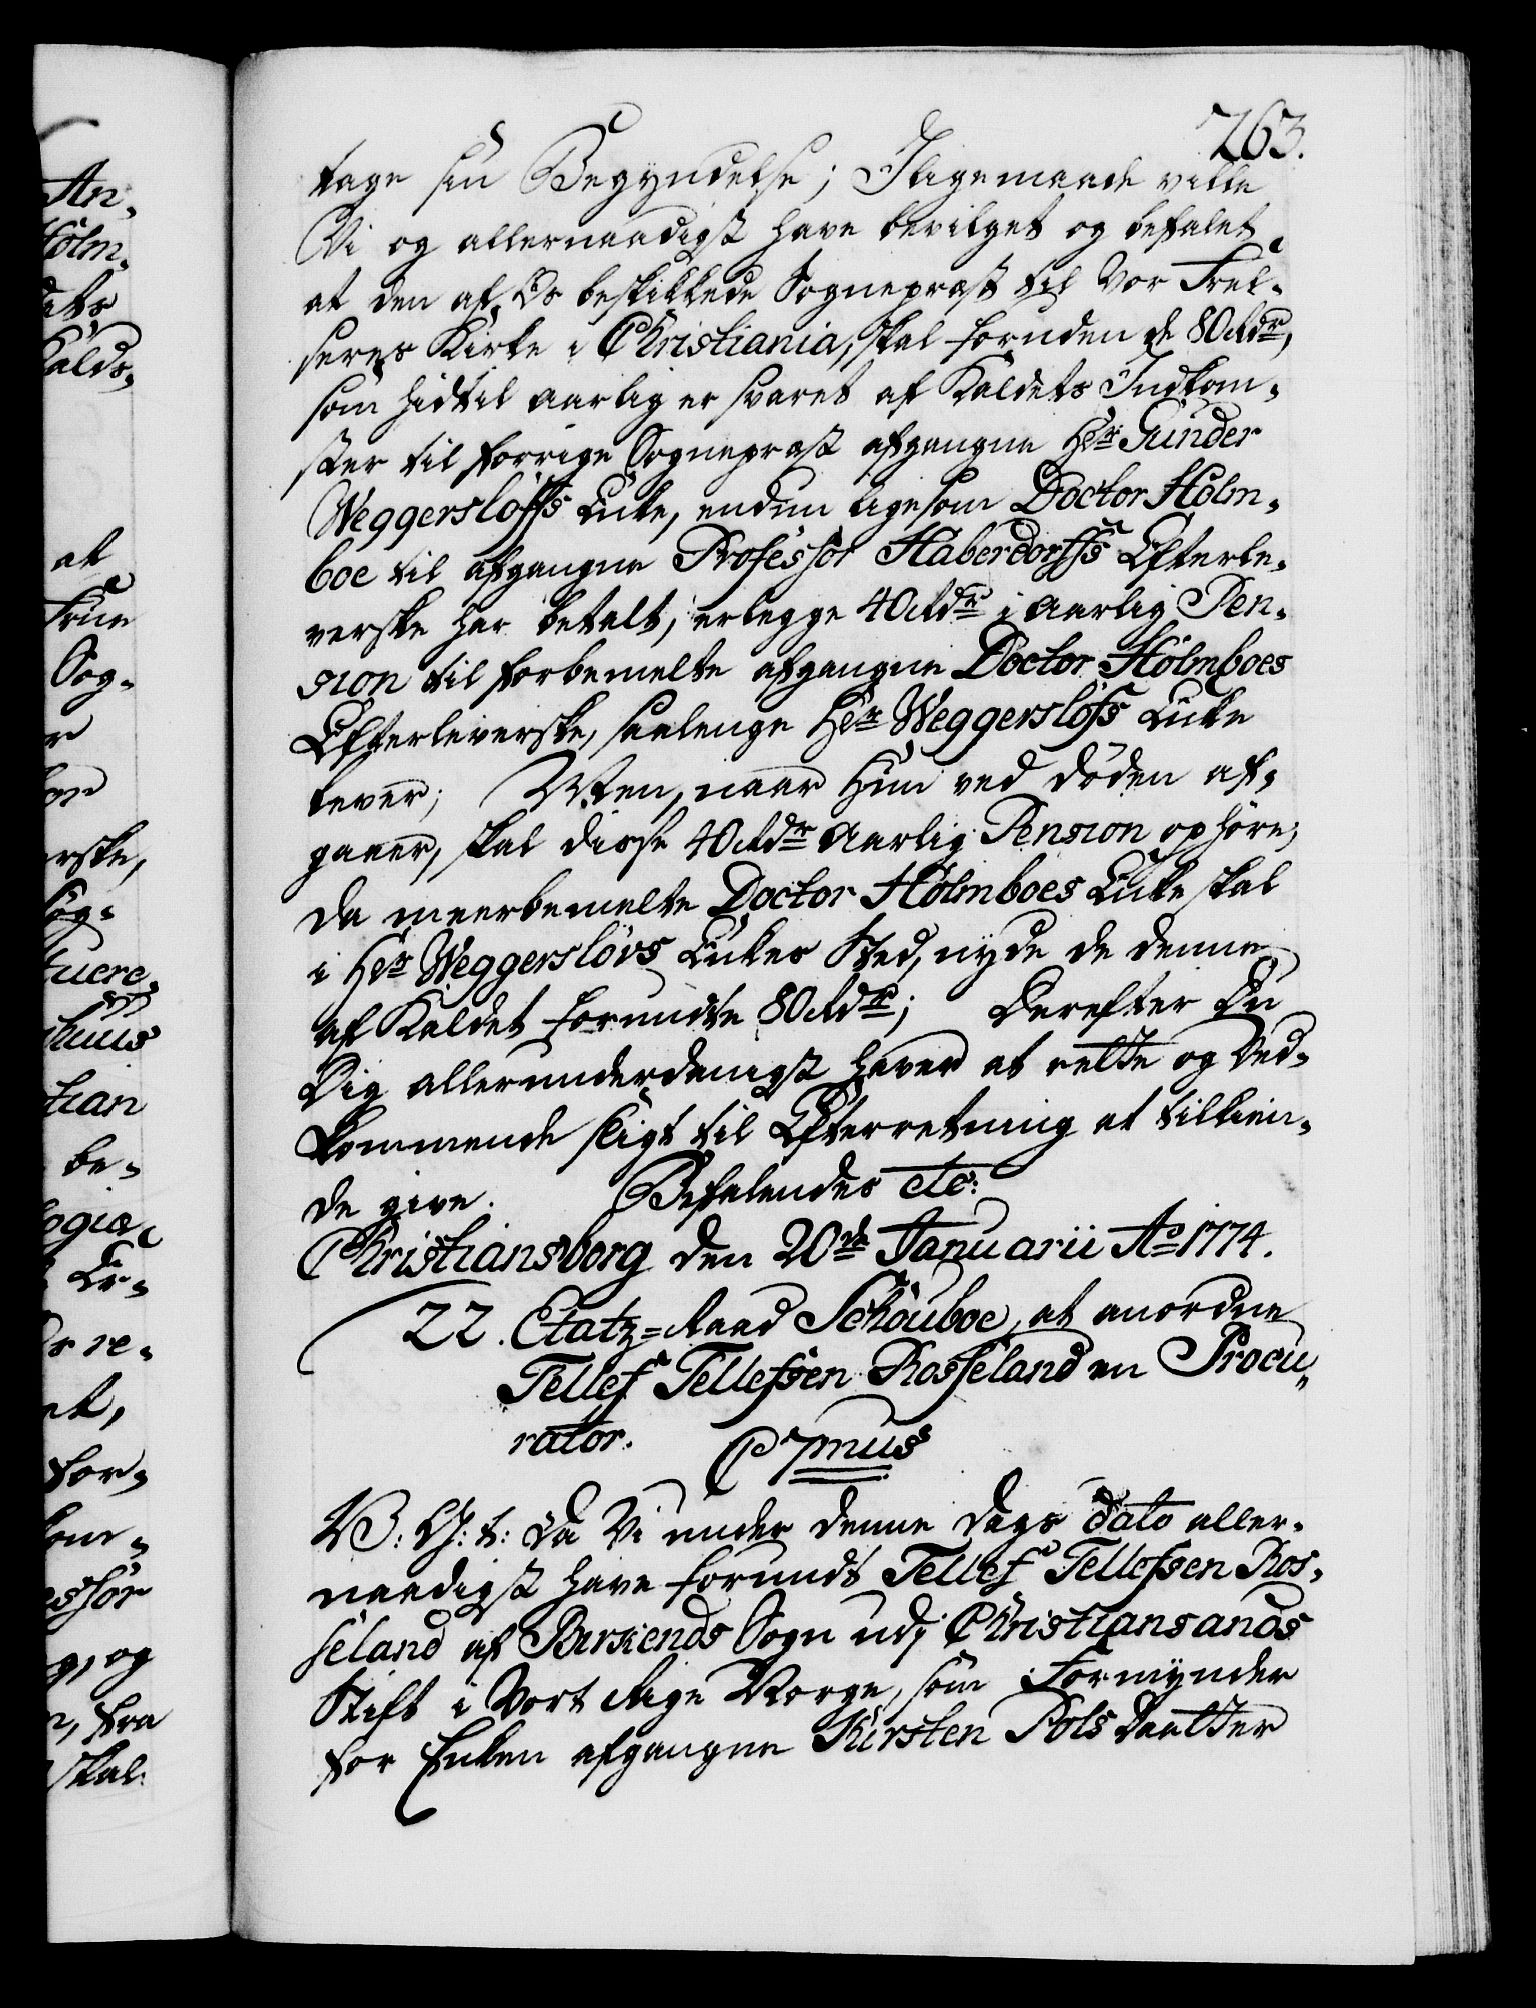 263.
tage sin Begyndelse; Jligemaade ville
Vi og allernaadigst have bevilget og befalet,
at den af Os beskikkede Sognepræst til Vor Frel-
seres Kirke i Christiania, skal foruden de 80 Rdr,
som hidtil aarlig er svaret af Kaldets Indkom-
ster til forrige Sognepræst afgangne Hr Gunder
Weggersløffs Enke, endnu ligesom Doctor Holm-
boe til afgangne Professor Haberdorffs Efterle-
verske har betalt, erlegge 40 Rdr i aarlig Pen-
sion til forbemelte afgangne Doctor Holmboes
Efterleverske, saalenge Hr Weggersløfs Enke
lever; Men, naar Hun ved Døden af-
gaaer, skal disse 40 Rdr Aarlig Pension ophøre,
da meerbemelte Doctor Holmboes Enke skal
i Hr Weggersløvs Enkes Sted, nyde de denne
af Kaldet forundte 80 Rdr; Derefter Du
Dig allerunderdanigst haver at rette og Ved-
kommende sligt til Efterretning at tilkien-
de give. Befalendes etc:
Christiansborg den 20de Januarii Ao 1774.
22. Etatz-Raad Schouboe, at anordne
Tellef Tellefsen Rosseland en Procu-
rator. C 7mus
V: G: t: Da Vi under denne Dags Dato aller-
naadigst have forundt Tellef Tellefsen Ros-
seland af Birkends Sogn udj Christiansands
Stift i Vort Rige Norge, som Formynder
for Enken afgangne Kirsten Pols Daatter
An-
Holm-
Kalds-
at
Frue
Sog-
erske,
Sog-
tuere-
huus
tian
be-
logiæ,
Er-
re-
et,
for-
kom-
essor
og
fra
skal